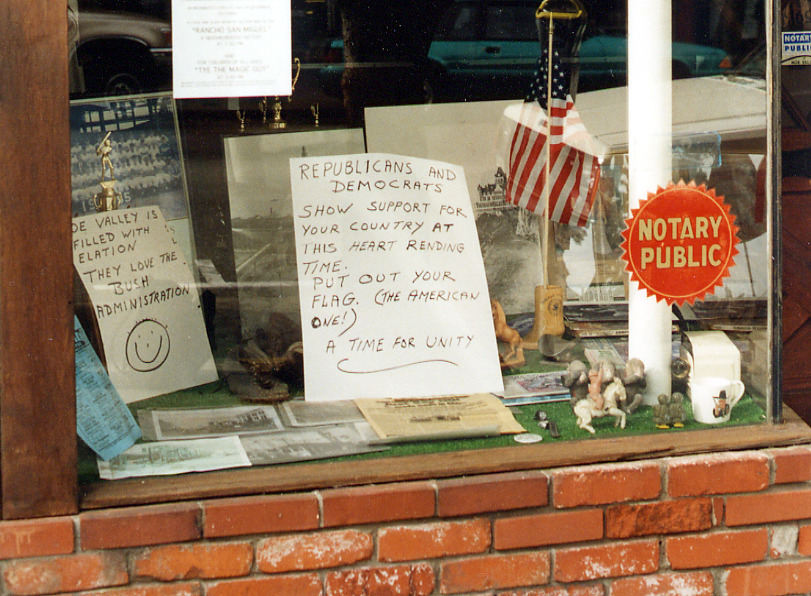 "RANCHO SAN MIGUEL"
AND
"TYE THE MAGIC GUY"
NOTARY
PUBLIC
REPUBLICANS AND
DEMOCRATS
SHOW SUPPORT FOR
YOUR COUNTRY AT
THIS HEART RENDING
TIME.
PUT OUT YOUR
FLAG. (THE AMERICAN
ONE!)
A TIME FOR UNITY
OE VALLEY IS
FILLED WITH
ELATION
THEY LOVE THE
BUSH
ADMINISTRATION
NOTARY
PUBLIC